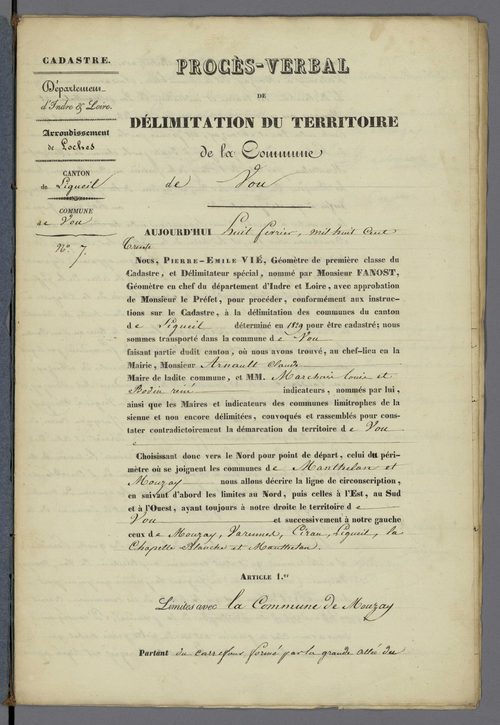 CADASTRE.
Département
d'Indre & Loire.
Arrondissement
de Loches
CANTON
de Ligueil
COMMUNE
de Vou
N.o 7.
PROCÈS-VERBAL
DE
DÉLIMITATION DU TERRITOIRE
de la Commune
de Vou
AUJOURD'HUI huit février, mil huit cent
trente
NOUS, PIERRE-EMILE VIÉ, Géomètre de première classe du
Cadastre, et Délimitateur spécial, nommé par Monsieur FANOST,
Géomètre en chef du département d'Indre et Loire, avec approbation
de Monsieur le Préfet, pour procéder, conformément aux instruc-
tions sur le Cadastre, à la délimitation des communes du canton
de Ligueil déterminé en 1829 pour être cadastré; nous
sommes transporté dans la commune de Vou
faisant partie dudit canton, où nous avons trouvé, au chef-lieu en la
Mairie, Monsieur Arnault Claude
Maire de ladite commune, et MM. Marchais louis et
Bodin rené indicateurs, nommés par lui,
ainsi que les Maires et indicateurs des communes limitrophes de la
sienne et non encore délimitées, convoqués et rassemblés pour cons-
tater contradictoirement la démarcation du territoire de Vou
Choisissant donc vers le Nord pour point de départ, celui du péri-
mètre où se joignent les communes de Manthelan et
Mouzay nous allons décrire la ligne de circonscription,
en suivant d'abord les limites au Nord, puis celles à l'Est, au Sud
et à l'Ouest, ayant toujours à notre droite le territoire de
Vou et successivement à notre gauche
ceux de Mouzay, Varennes, Ciran, Ligueil, la
Chapelle Blanche et Manthelan.
ARTICLE 1.er
Limites avec la Commune de Mouzay
Partent du carrefour formé par la grande allée du